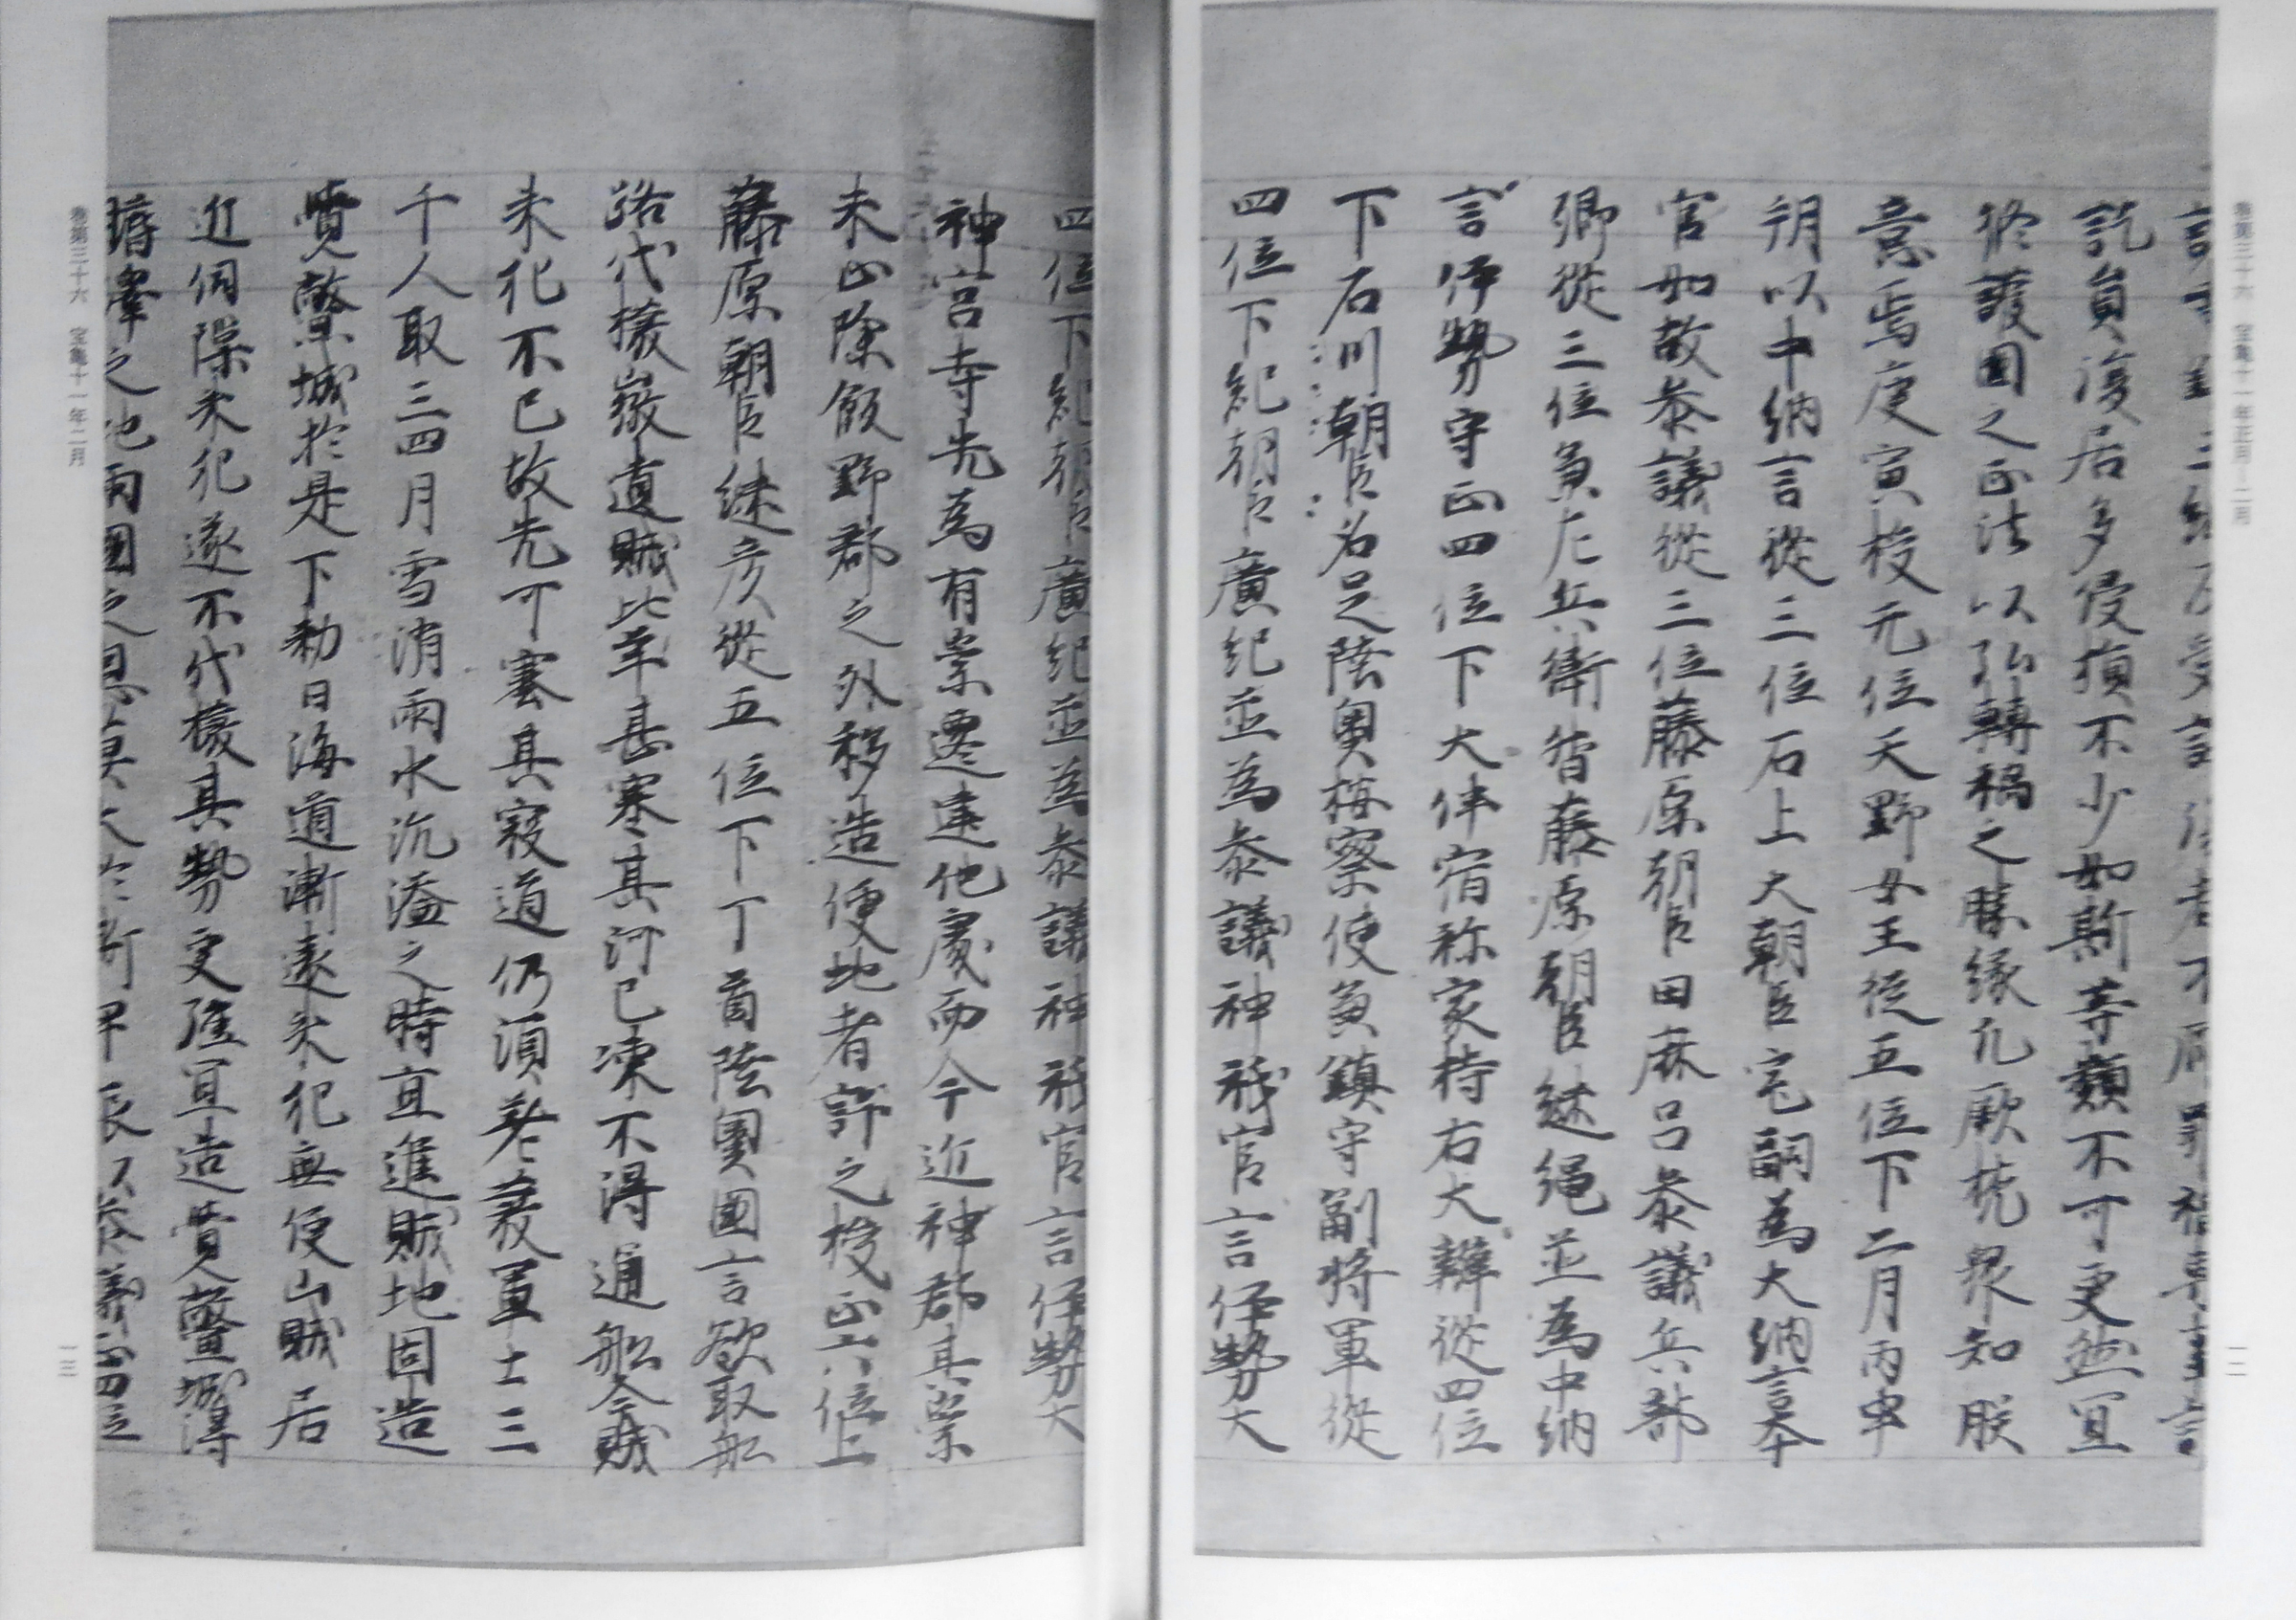 卷第三十六 宝亀十一年正月—二月
一二
託員復居多侵損不少如斯等類不可更然宜
修護国之正法以弘轉禍之勝縁凡厥梵衆知朕
意焉庚寅授无位天野女王從五位下二月丙申
朔以中納言從三位石上大朝臣宅嗣為大納言本
官如故参議從三位藤原朝臣田麻呂参議兵部
卿從三位兼左兵衛督藤原朝臣継縄並為中納
言伊勢守正四位下大伴宿祢家持右大辨從四位
下石川朝臣名足陸奥按察使兼鎮守副将軍從
四位下紀朝臣廣紀並為参議神祇官言伊勢大
四位下紀朝臣廣紀並為参議神祇官言伊勢大
神宮寺先為有祟遷建他處而今近神郡其祟
未止除飯野郡之外移造便地者許之授正六位上
藤原朝臣継彦從五位下丁酉陸奥國言欲取船
路伐撥遺賊比年甚寒其河已凍不得通船今賊
来犯不已故先可塞其寇道仍須差發軍士三
千人取三四月雪消雨水汎溢之時直進賊地固造
覺鱉城於是下勅曰海道漸遠来犯無便山賊居
近伺隙来犯遂不伐撥其勢更強宜造覺鱉城得
之地兩國之
卷第三十六 宝亀十一年二月
一三